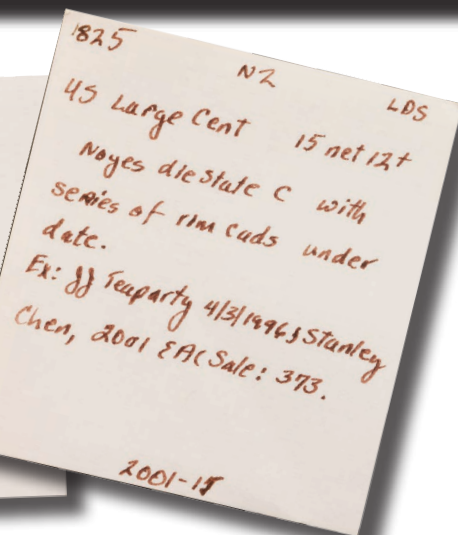 1825 N2 LDS
US Large Cent 15 net 12+
Noyes die state C with
series of rim cuds under
date.
Ex: JJ Teaparty 4/3/1996; Stanley
Chen, 2001 EAC Sale: 373.
2001-15